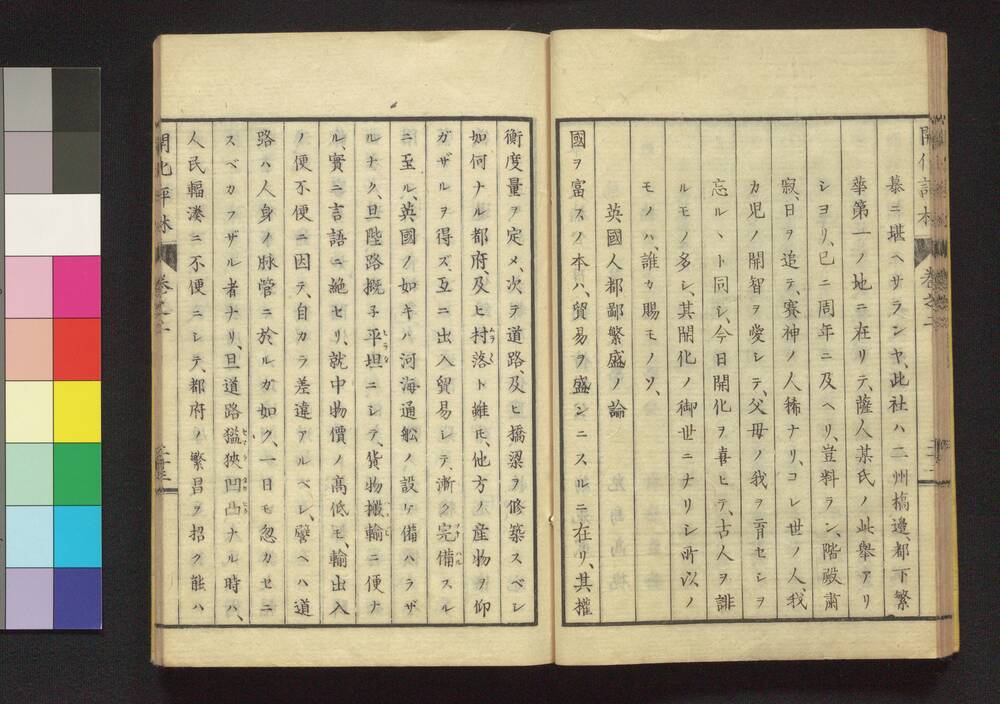 慕ニ堪ヘサランヤ、此社ハ二州橋邉、都下繁
華第一ノ地ニ在リテ、薩人某氏ノ此舉アリ
シヨリ、已ニ周年ニ及ヘリ、豈料ラン、階殿肅
寂、日ヲ追テ、賽神ノ人稀ナリ、コレ世ノ人、我
カ児ノ開智ヲ愛シテ、父母ノ我ヲ育セシヲ
忘ルヽト同シ、今日開化ヲ喜ヒテ、古人ヲ誹
ルモノ多シ、其開化ノ御世ニナリシ所以ノ
モノハ、誰カ賜モノソ、
英國人都鄙繁盛ノ論
國ヲ富スノ本ハ、貿易ヲ盛ンニスルニ在リ、其權
衡度量ヲ定メ、次ヲ道路、及ヒ橋梁ヲ修築スベシ
如何ナル都府、及ヒ村落ト雖𪜈、他方ノ産物ヲ仰
ガザルヲ得ズ、互ニ出入貿易シテ、漸ク完備スル
ニ至ル、英國ノ如キハ河海通舩ノ設ケ備ハラザ
ルナク、且陸路概子平坦ニシテ、貨物搬輸ニ便ナ
ル、實ニ言語ニ絶セリ、就中物價ノ髙低モ、輸出入
ノ便不便ニ因テ、自カラ差違アルベシ、譬ヘハ道
路ハ人身ノ脉管ニ於ルガ如ク、一日モ忽カセニ
スベカラザル者ナリ、且道路狭凹凸ナル時ハ、
人民輻湊ニ不便ニシテ、都府ノ繁昌ヲ招ク能ハ
開化評林
卷之二